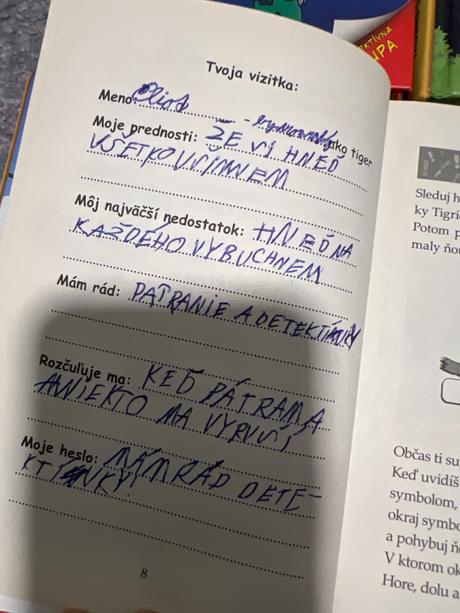 Tvoja vizitka:
Meno: Eliot jako tiger
Moje prednosti: ŽE SI HNEĎ
VŠETKO VŠÍMNEM
Môj najväčší nedostatok: HNEĎ NA
KAŽDÉHO VYBUCHNEM
Mám rád: PÁTRANIE A DETEKTÍVKY
Rozčuľuje ma: KEĎ PÁTRAM A
A NIEKTO MA VYRUŠÍ
Moje heslo: MÁM RÁD DETE-
KTÍVKY!
8
Sleduj h
ky Tigri
Potom p
maly ňou
Občas ti su
Keď uvidíš
symbolom,
okraj symbo
a pohybuj ň
V ktorom ok
Hore, dolu a
EKTÍVNA
UPA